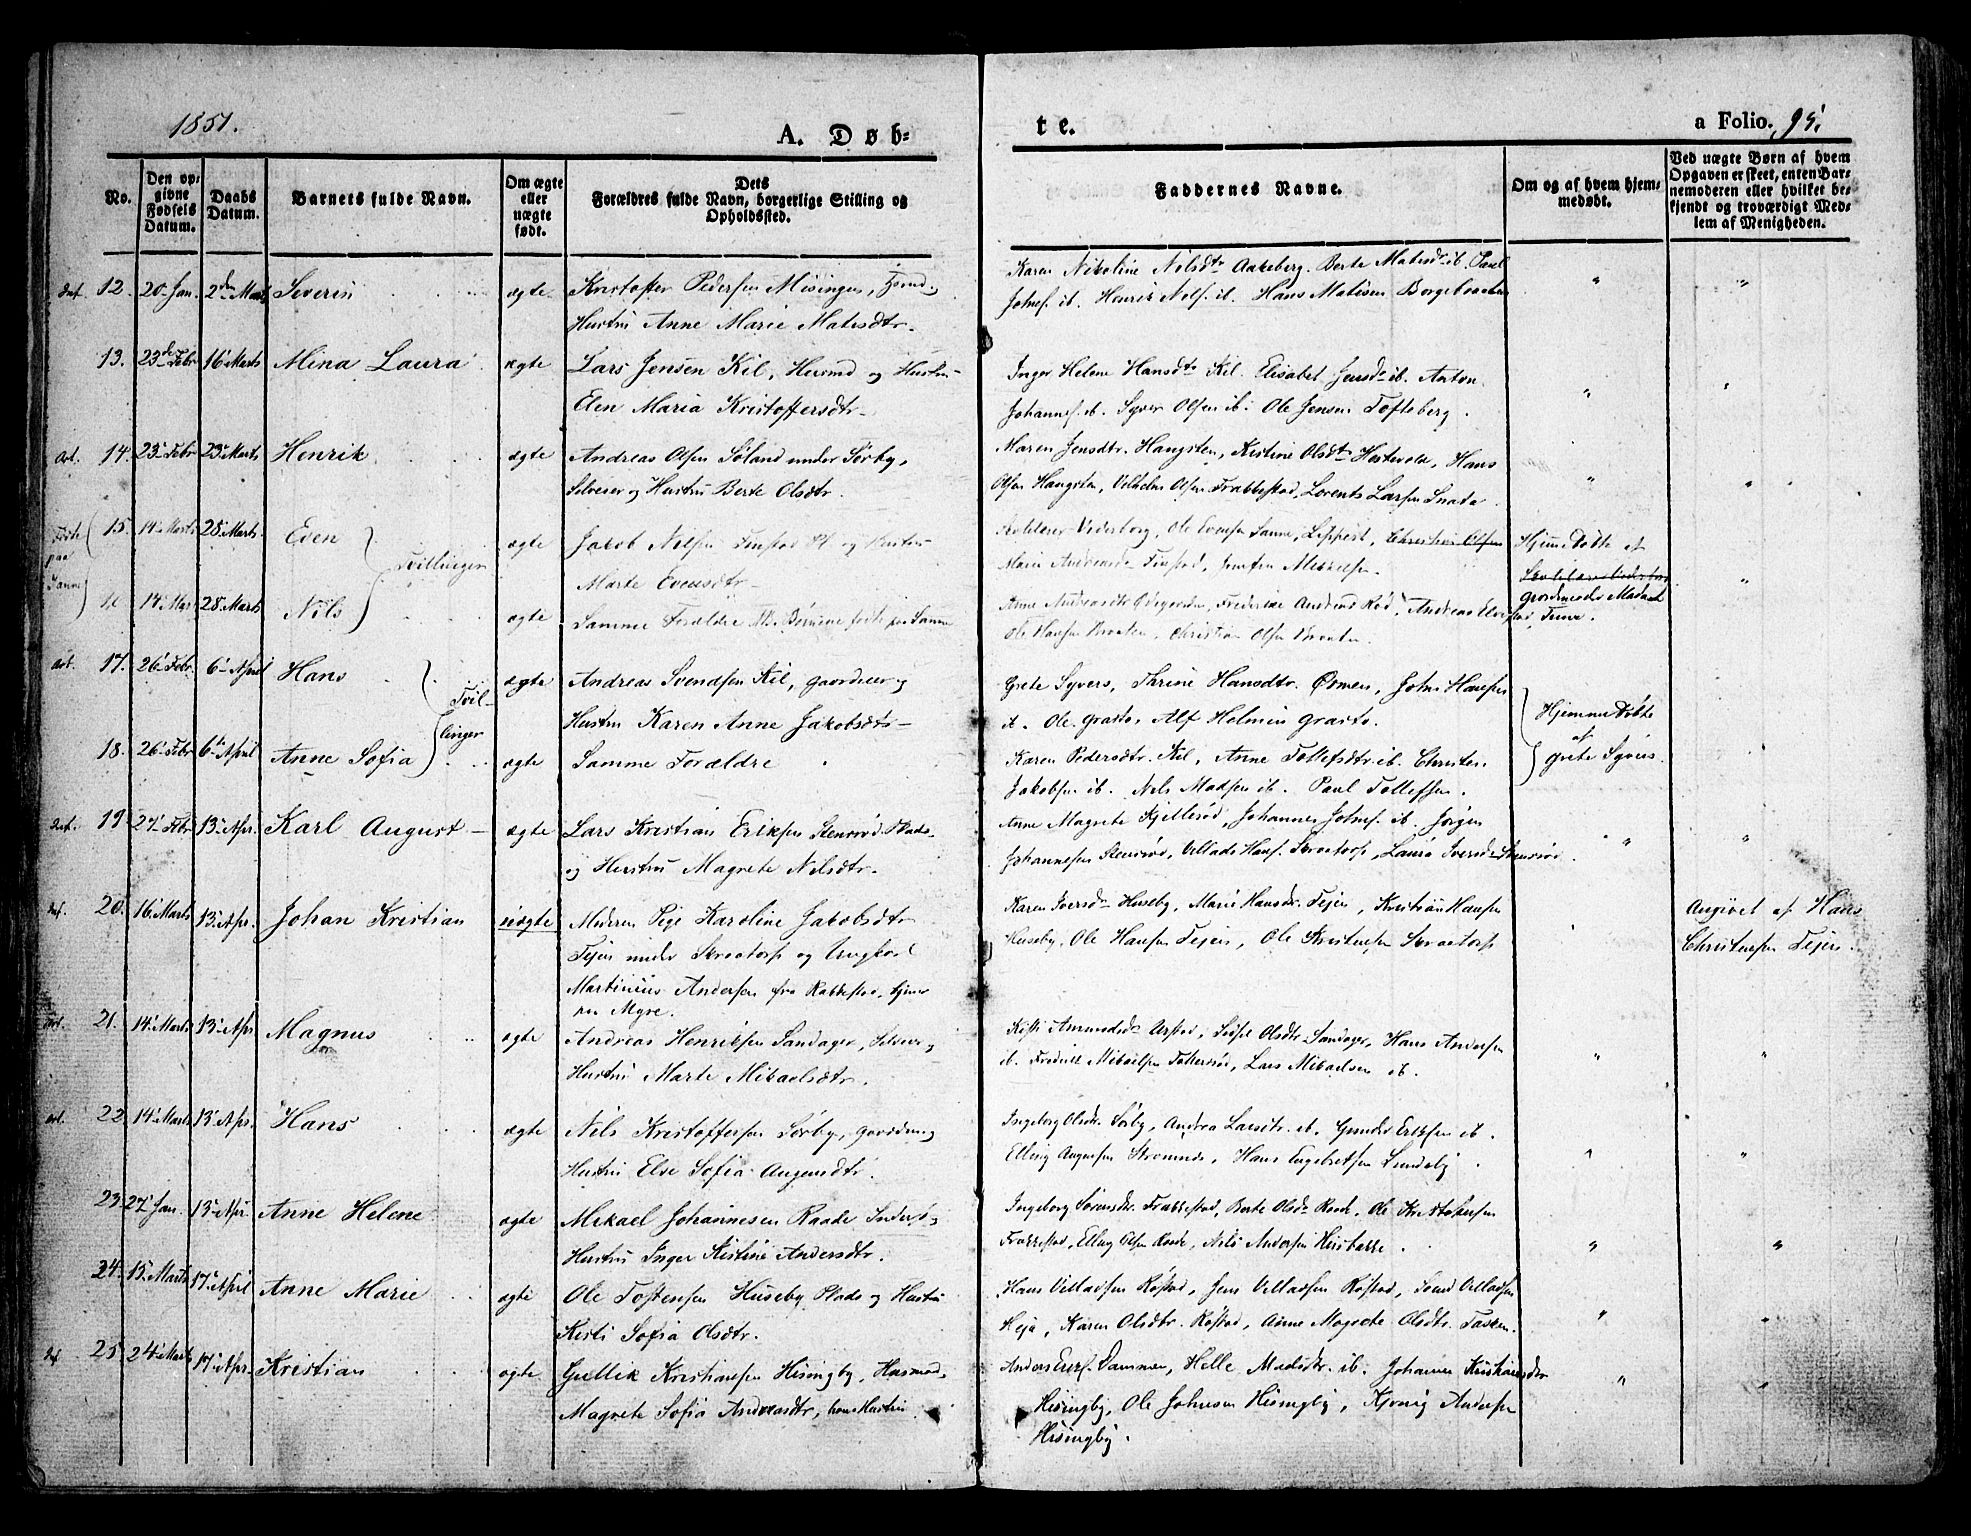 1851.
A. Døb=
te.
a Folio. 95.
No.
Den op=
givne
Fødsels
Datum.
Daabs
Datum.
Barnets fulde Navn.
Om ægte
eller
uægte
født.
Dets
Forældres fulde Navn, borgerlige Stilling og
Opholdssted.
Faddernes Navne.
Om og af hvem hjem=
medøbt.
Ved uægte Børn af hvem
Opgaven er skeet, enten Bar=
nemoderen eller hvilket be=
kjendt og troværdigt Med=
lem af Menigheden.
12. 20 Jan. 2den Marts Severin ægte Kristoffer Pedersen Misingen,
Hustru Anne Marie Matisdtr.
Karen Nikoline Nilsdtr Aakeberg. Berte Matisdtr ib. Paul
Johns. ib. Henrik Nels. ib. Hans Matisen Borgebraaten
13. 23de Febr 16 Marts Mina Laura ægte Lars Jensen Kil, Husmd og Hustru
Elen Maria Kristoffersdtr
Inger Helene Hansdtr Kil. Elisabet Jensdtr ib. Anton
Johannes. ib. Syver Olsen ib. Ole Jensen Tofteberg.
14. 23 Febr 23 Marts Henrik ægte Andreas Olsen Søland under Sørby,
Selveier og Hustru Berte Olsdtr.
Maren Jensdtr. Haugsten, Kistine Olsdtr Hostvedt, Hans
Olsen Haugsten, Vilhelm Olsen Frabbestad, Lorents Larsen Snada
Førte paa Sanne
15. 14 Marts 28 Marts Even Tvillinger ægte Jakob Nilsen Finstad Pl og Hustru
Marte Evensdtr
Ole Evensen Sanne, Lippert, Christian Olsen
Marie Andreasdtr Finstad, Mikkelsen
Hjemedøbte af
gjordemoder Madame
16 14 Mar 28 Marts Nils ægte Samme Forældre NB. Børnene førte paa Sanne
Ole Hansen Braaten, Christian Olsen Braaten
17. 26 Febr. 6 April Hans Tvil-
linger ægte Andreas Svendsen Kil, gaardeier og
Hustru Karen Anne Jakobsdtr
Grete Syvers, Thrine Hansdtr. Ørmen, Johs Hansen
ib. Ole Graato, Alf Holmin Graato.
Hjemmedøbte
af
Grete Syvers.
18. 26 Febr 6te April Anne Sofia ægte Samme Forældre
Karen Pedersdtr. Kil, Anne Tollefsdtr ib. Christen
Jakobsen ib. Nels Madsen ib. Paul Tollefsen.
19. 27 Febr 13 Apr. Karl August ægte Lars Kristian Eriksen Stensrød Plads
og Hustru Magrete Nilsdtr.
Anne Magrete Kjellerød, Johannes Johns. ib. Jørgen
Johannesen Stensrød, Villads Hans. Skraatorp, Laura Iversd Stensrød.
20. 16 Marts 13 Apr. Johan Kristian uægte Moderen Pige Karoline Jakobsdtr
Tejen under Skraatorp og Ungkarl
Martinius Andersen fra Rabbestad, tjener
paa Myre.
Karen Iversdtr Huseby, Marie Hansdr. Tejen, Kristian Hansen
Huseby, Ole Hansen Tejen, Ole Kristensen Skraatorp
Angivet af Hans
Christensen Tejen.
21. 14 Marts 13 Apr. Magnus ægte Andreas Henriksen Sandager, Selveier
Hustru Marte Mikaelsdtr.
Olsdtr. Sandager, Hans Andersen
ib. Fredrik Mikaelsen, Lars Mikaelsen ib.
22. 14 Marts 13 Apr. Hans ægte Nils Kristoffersen Sørby, gaardm og
Hustru Else Sofia Augensdtr.
Ingeborg Olsdtr. Sørby, Andrea Larsdtr. ib. Gunder Eriksen ib.
Elling Augensen Stromnes, Hans Engebretsen Sundeby
23. 27 Jan. 13 Apr. Anne Helene ægte Mikael Johannesen Raade
Hustru Inger Kistine Andersdtr.
Ingeborg Sørensdtr. Frabbestad, Berte Olsdtr Raade, Ole Kristofersen
Frabbestad, Elling Olsen Raade, Nils Andersen Husbakke.
24. 15 Marts 17 April Anne Marie ægte Ole Tostensen Huseby Plads og Hustru
Kisti Sofia Olsdtr.
Hans Villadsen Røstad, Jens Villadsen Røstad, Villadsen
Heja, Karen Olsdtr. Røstad, Anne Magrete Olsdtr. Tasken.
25. 24 Marts 17 Apr. Kristian ægte Gullik Kristiansen Hisingby, Husmd.
Magrete Sofia Andreasdtr, hans Hustru
Helle Madsdtr. ib. Johanne Kristiansdtr
Hisingby, Ole Johnsen Hisingby, Andersen
Hisingby.